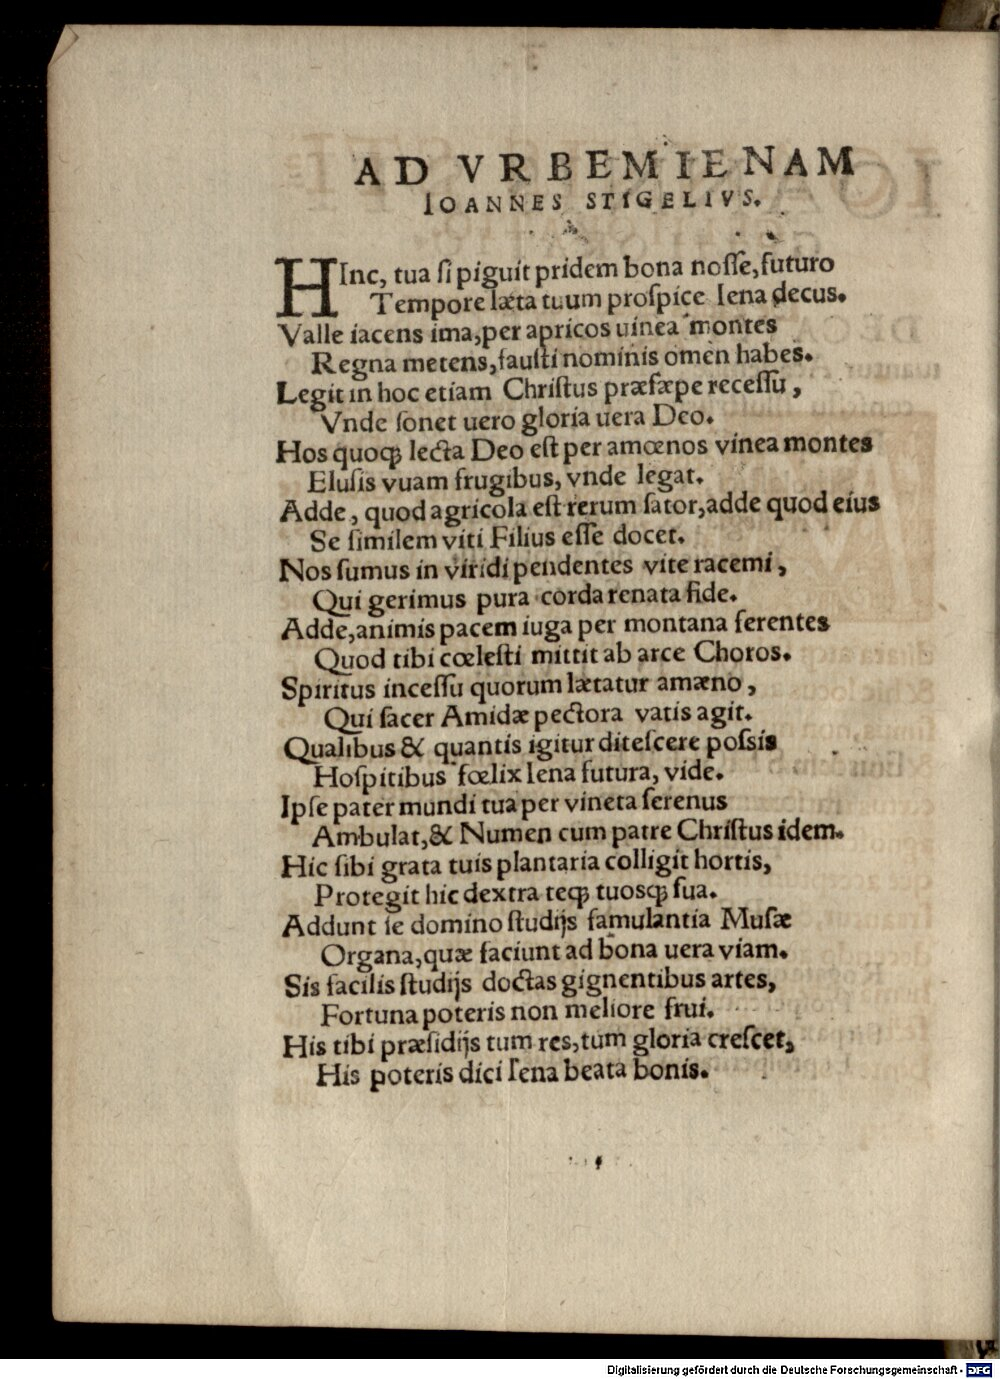 AD VRBEM IENAM
IOANNES STIGELIVS.
HInc, tua si piguit pridem bona nosse, futuro
Tempore læta tuum prospice Iena decus.
Valle iacens ima, per apricos uinea montes
Regna metens, fausti nominis omen habes.
Legit in hoc etiam Christus præsæpe recessu,
Vnde sonet uero gloria uera Deo.
Hos quoqꝫ lecta Deo est per amœnos vinea montes
Elusis vuam frugibus, vnde legat.
Adde, quod agricola est rerum sator, adde quod eius
Se similem viti Filius esse docet.
Nos sumus in viridi pendentes vite racemi,
Qui gerimus pura corda renata fide.
Adde, animis pacem iuga per montana ferentes
Quod tibi cœlesti mittit ab arce Choros.
Spiritus incessu quorum lætatur amæno,
Qui sacer Amidæ pectora vatis agit.
Qualibus & quantis igitur ditescere possis
Hospitibus fœlix Iena futura, vide.
Ipse pater mundi tua per vineta serenus
Ambulat, & Numen cum patre Christus idem.
Hic sibi grata tuis plantaria colligit hortis,
Protegit hic dextra teqꝫ tuosqꝫ sua.
Addunt se domino studijs famulantia Musæ
Organa, quæ faciunt ad bona uera viam.
Sis facilis studijs doctas gignentibus artes,
Fortuna poteris non meliore frui.
His tibi præsidijs tum res, tum gloria crescet,
His poteris dici Iena beata bonis.
Digitalisierung gefördert durch die Deutsche Forschungsgemeinschaft - DFG